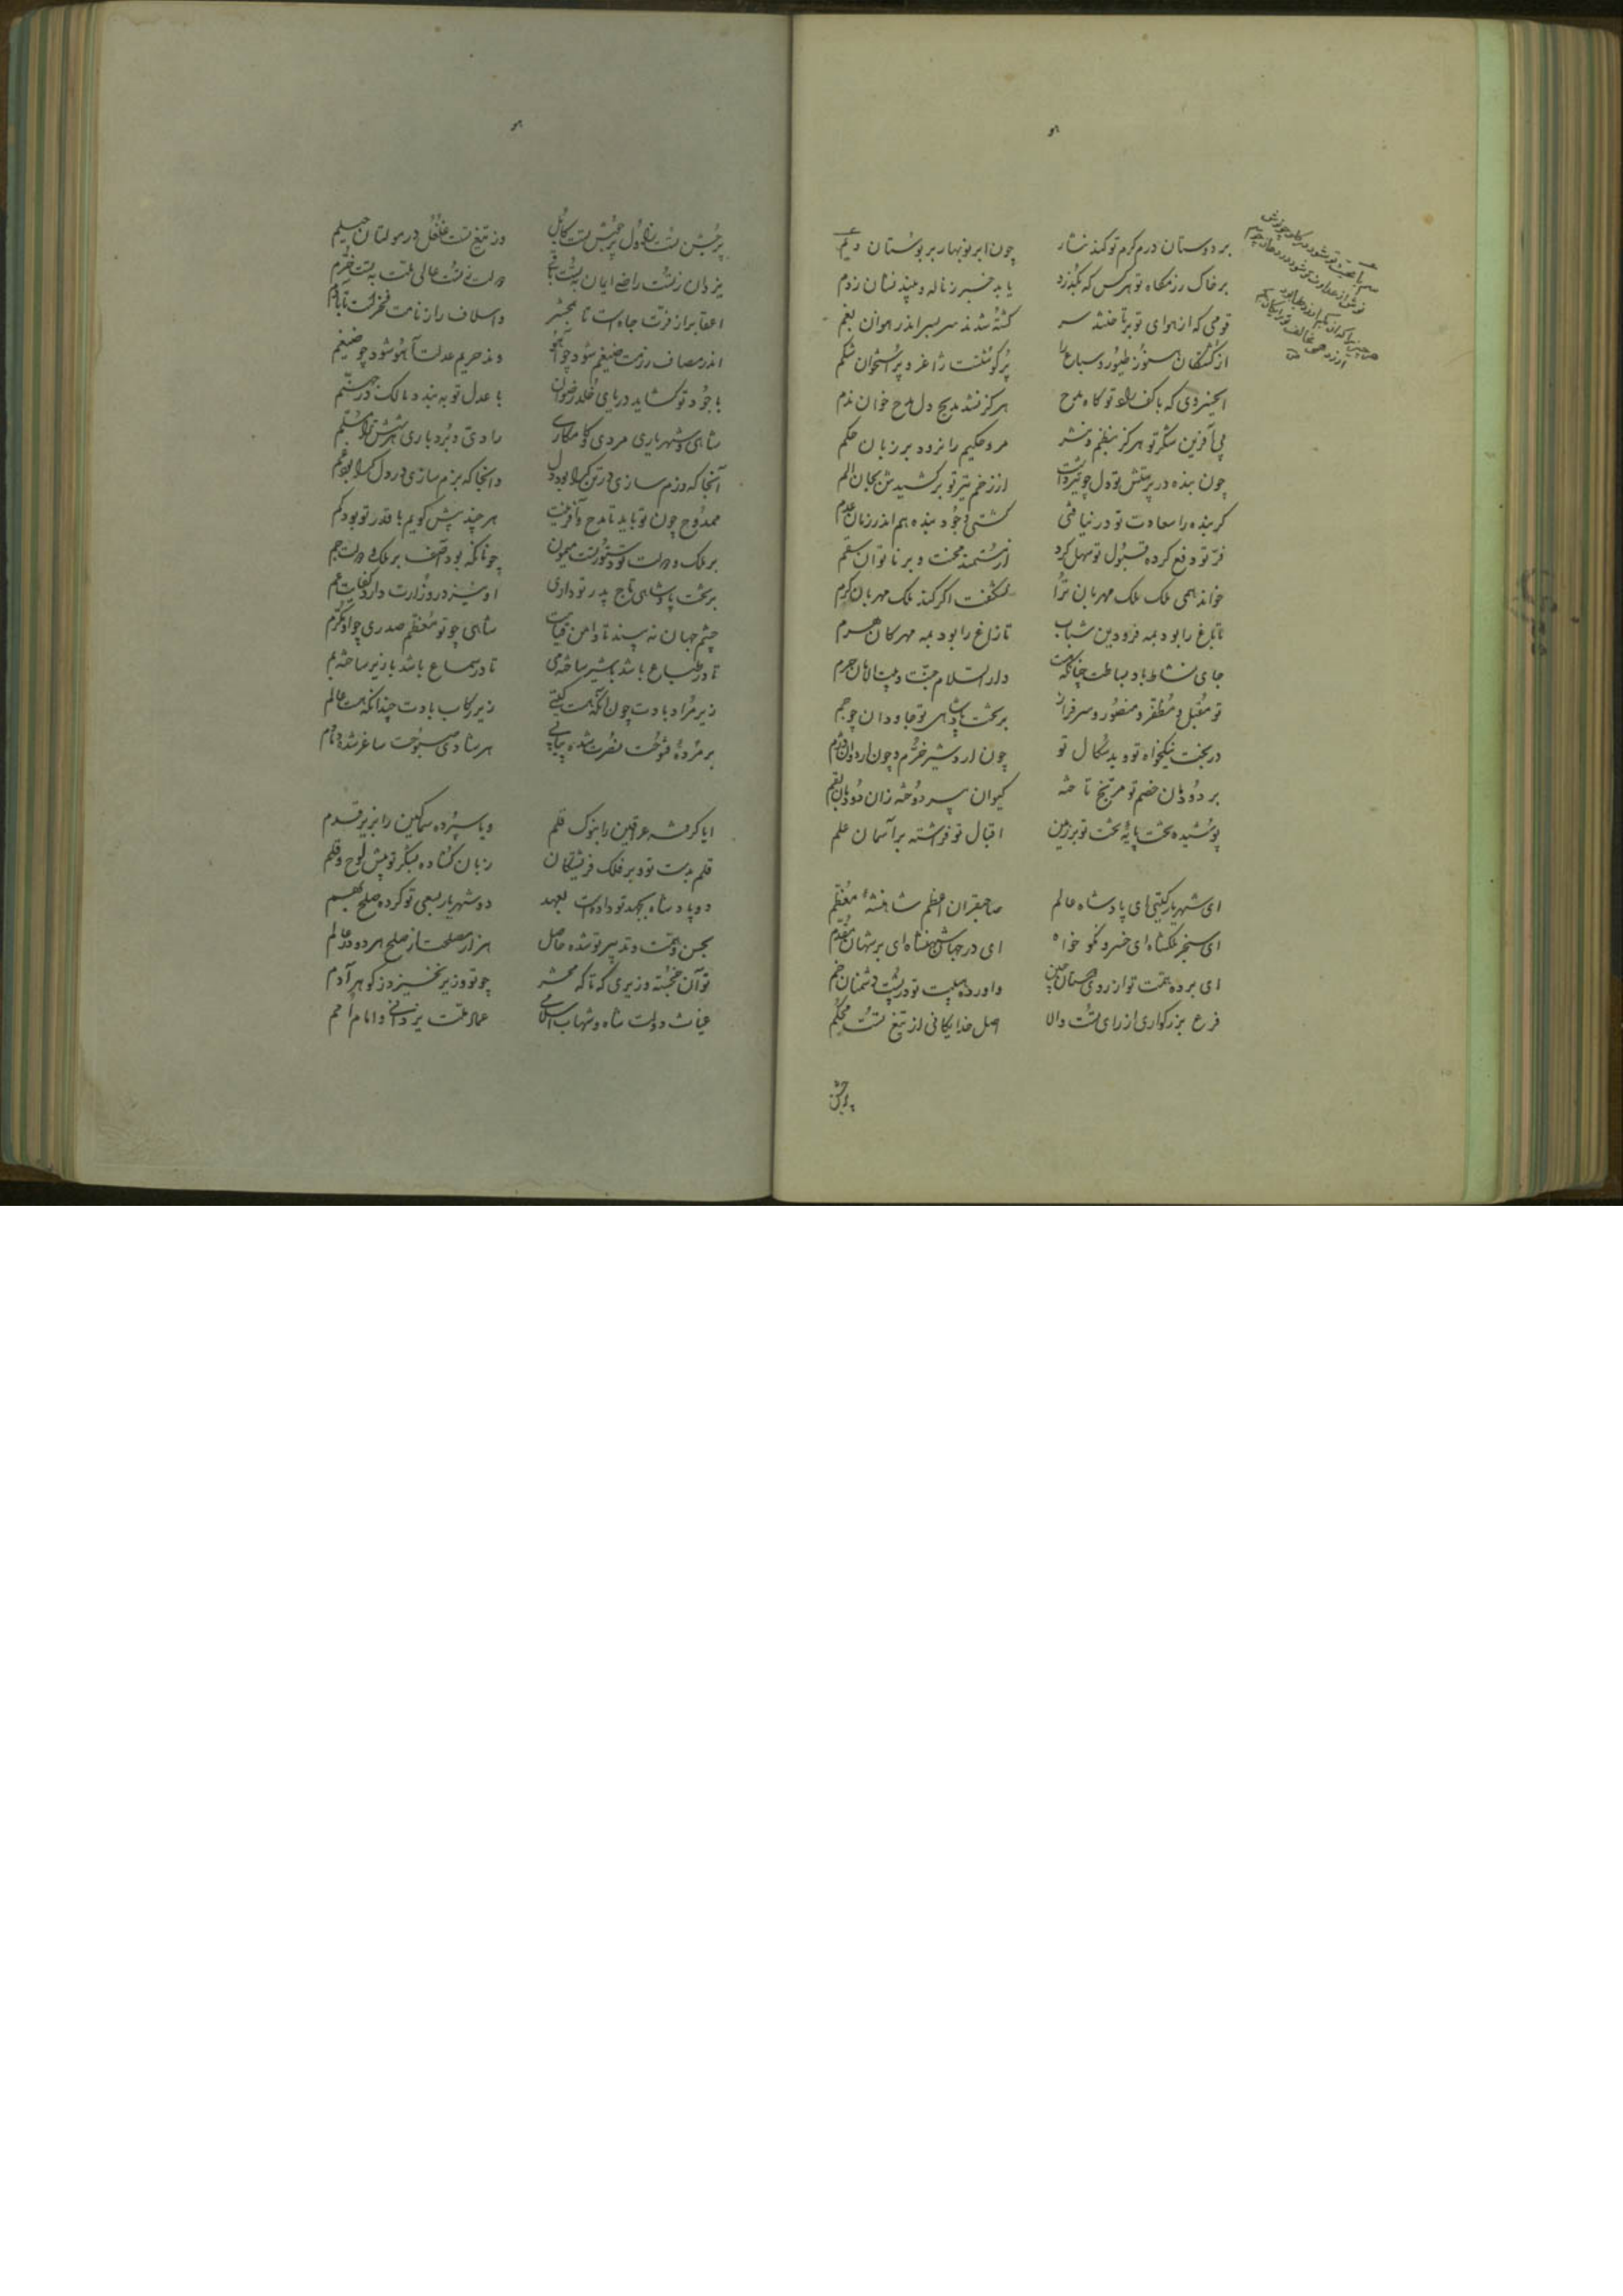 هو
بر دوستان درم کرم تو کند نثار چون ابر نوبهار بر بوستان دیم
بر خاک رزمگاه تو هر کس که بگذرد یابد خبر ز ناله و بیند نشان ز دم
قومی که از هوای تو برتافتند سر کشته شدند سربسر اندر هوان بغم
از کشتگان هنوز طیور و سباع را پر کوشتست ژاغر و پر استخوان شکم
هرکز نشد مدیح دل مدح خوان ندم
بی آفرین شکر تو هرکز بنظم و نثر مر حکیم را نرود بر زبان حکم
چون بنده در پرستش تو دل چو تیر داشت از زخم تیر تو برکشیدش بجان الم
کر بنده را سعادت تو در نیافتی کشتی وجود بنده هم اندر زمان عدم
فر تو دفع کرد و قبول تو سهل کرد از مستمند محنت و بر ناتوان سقم
خواند همی ملک ملک مهربان ترا نشکفت اکر کند ملک مهربان کرم
تا باغ را بود بمه فرودین شباب تا زاغ را بود بمه مهرکان هرم
جای نشاط باد بساطت چنانکه هست دار السلام جنت و بیت الامان حرم
تو مقبل و مظفر و منصور و سرفراز بر تخت پادشاهی تو جاودان چو جم
در بخت نیکخواه تو و بدسکال تو چون اردشیر خرم و چون اردوان دژم
بر دودمان خصم تو مریخ تاخته کیوان سپر دوخته زان دودمان نقم
پوشیده تخت پایهٔ تخت تو بر زمین اقبال تو فراشته بر آسمان علم
ای شهریار کیتی ای پادشاه عالم صاحبقران اعظم شاهنشهٔ معظم
ای سنجر ملکشاه ای خسرو نکو خواه ای در جهان شهنشاه ای بر شهان مقدم
ای برده همت تو از روی دوستان چین واورده هیبت تو در پشت دشمنان خم
فرع بزرکواری از رای تست والا اصل خدایکانی از تیغ تست محکم
پر جشن
هو
پر جشن تست زاول پر جیش تست کابل وز تیغ تست غلغل در مولتان و جیلم
یزدان ز تست راضی ایمان به تست باقی دولت ز تست عالی ملت به تست خرم
اعقاب را ز فرت جاه است تا بمحشر واسلاف را ز نامت فخر است تا بآدم
اندر مصاف رزمت ضیغم شود چو آهو وندر حریم عدلت آهو شود چو ضیغم
با جود تو کشاید درهای خلد رضوان با عدل تو به بندد مالک در جهنم
شاهی و شهریاری مردی و کامکاری رادی و بردباری هر شش ترا مسلم
آنجا که رزم سازی در تن کرا بود دل وانجا که بزم سازی در دل کرا بود غم
ممدوح چون تو باید تا مدح و آفرینت هر چند بیش کویم با قدر تو بود کم
بر ملک و دولت تو دستور تست میمون چونانکه بود آصف بر ملک و دولت جم
بر تخت پادشاهی تاج پدر تو داری او نیز در وزارت دارد کفایت عم
چشم جهان نه بیند تا دامن قیامت شاهی چو تو معظم صدری چو او مکرم
تا در طباع باشد با شیر ساخته می تا در سماع باشد با زیر ساخته بم
زیر مراد بادت چون آنکه هست کیتی زیر رکاب بادت چندانکه هست عالم
بر مژدهٔ فتوحت نصرت شده پیاپی هر شادی صبوحت ساغر شده دمادم
ایا کرفته عراقین را بنوک قلم ویا سپرده سماکین را بزیر قدم
قلم بدست تو و بر فلک فریشتکان زبان کشاده بشکر تو پیش لوح و قلم
دو پادشاه بجهد تو داده دست بعهد دو شهریار بسعی تو کرده صلح بهم
بحسن همت و تدبیر تو شده حاصل هزار مصلحت از صلح هر دو در عالم
تو آن خجسته وزیری که تا که محشر چو تو وزیر نخیزد ز کوهر آدم
غیاث دولت شاه و شهاب اسلامی عماد ملت یزدانی و امام امم